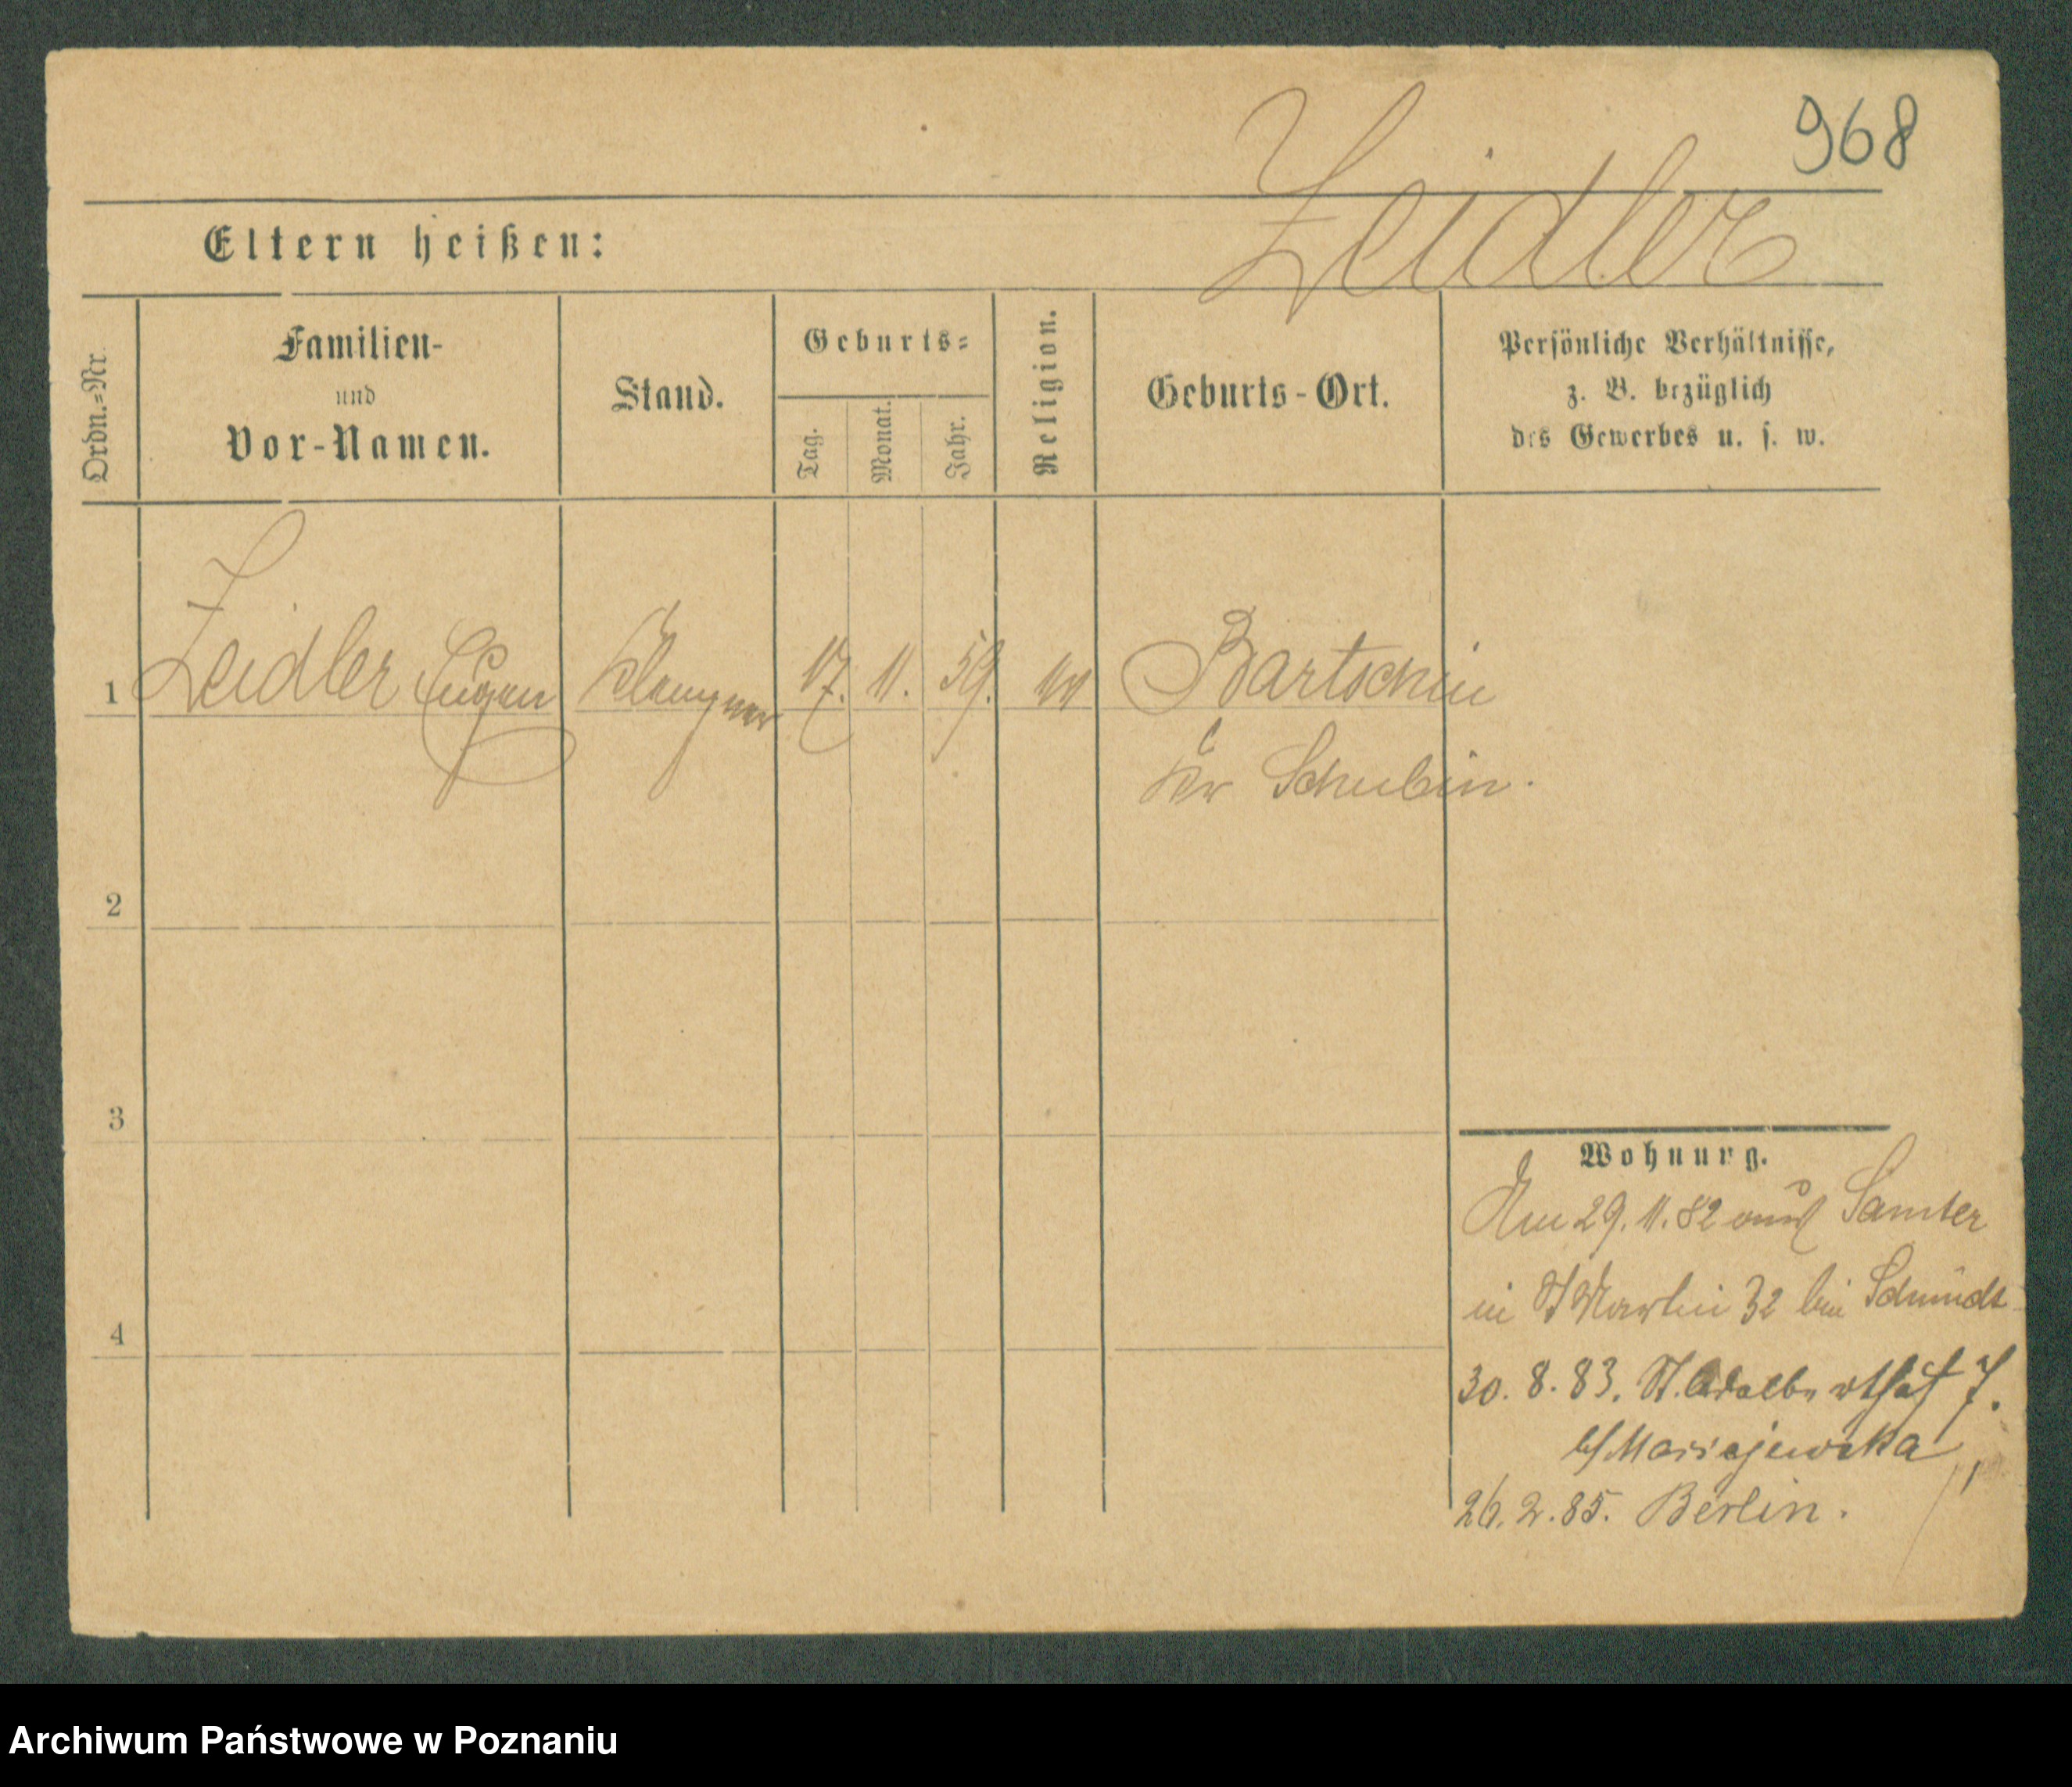 968
Zeidler
Eltern heißen:
Ordn.=Nr.
Familien-
und
Vor-Namen.
Stand.
Geburts=
Tag.
Monat.
Jahr.
Religion.
Geburts-Ort.
Persönliche Verhältnisse,
z. B. bezüglich
des Gewerbes u. s. w.
1 Zeidler Eugen Klempner 17. 11. 59. Bartschin
Kr Schubin.
2
3
4
Wohnung.
Am 29. 11. 82 aus Samter
in St Martin 32 bei Schmidt
30. 8. 83. St. Adalbert 7.
b/
26. 2. 85. Berlin.
Archiwum Państwowe w Poznaniu